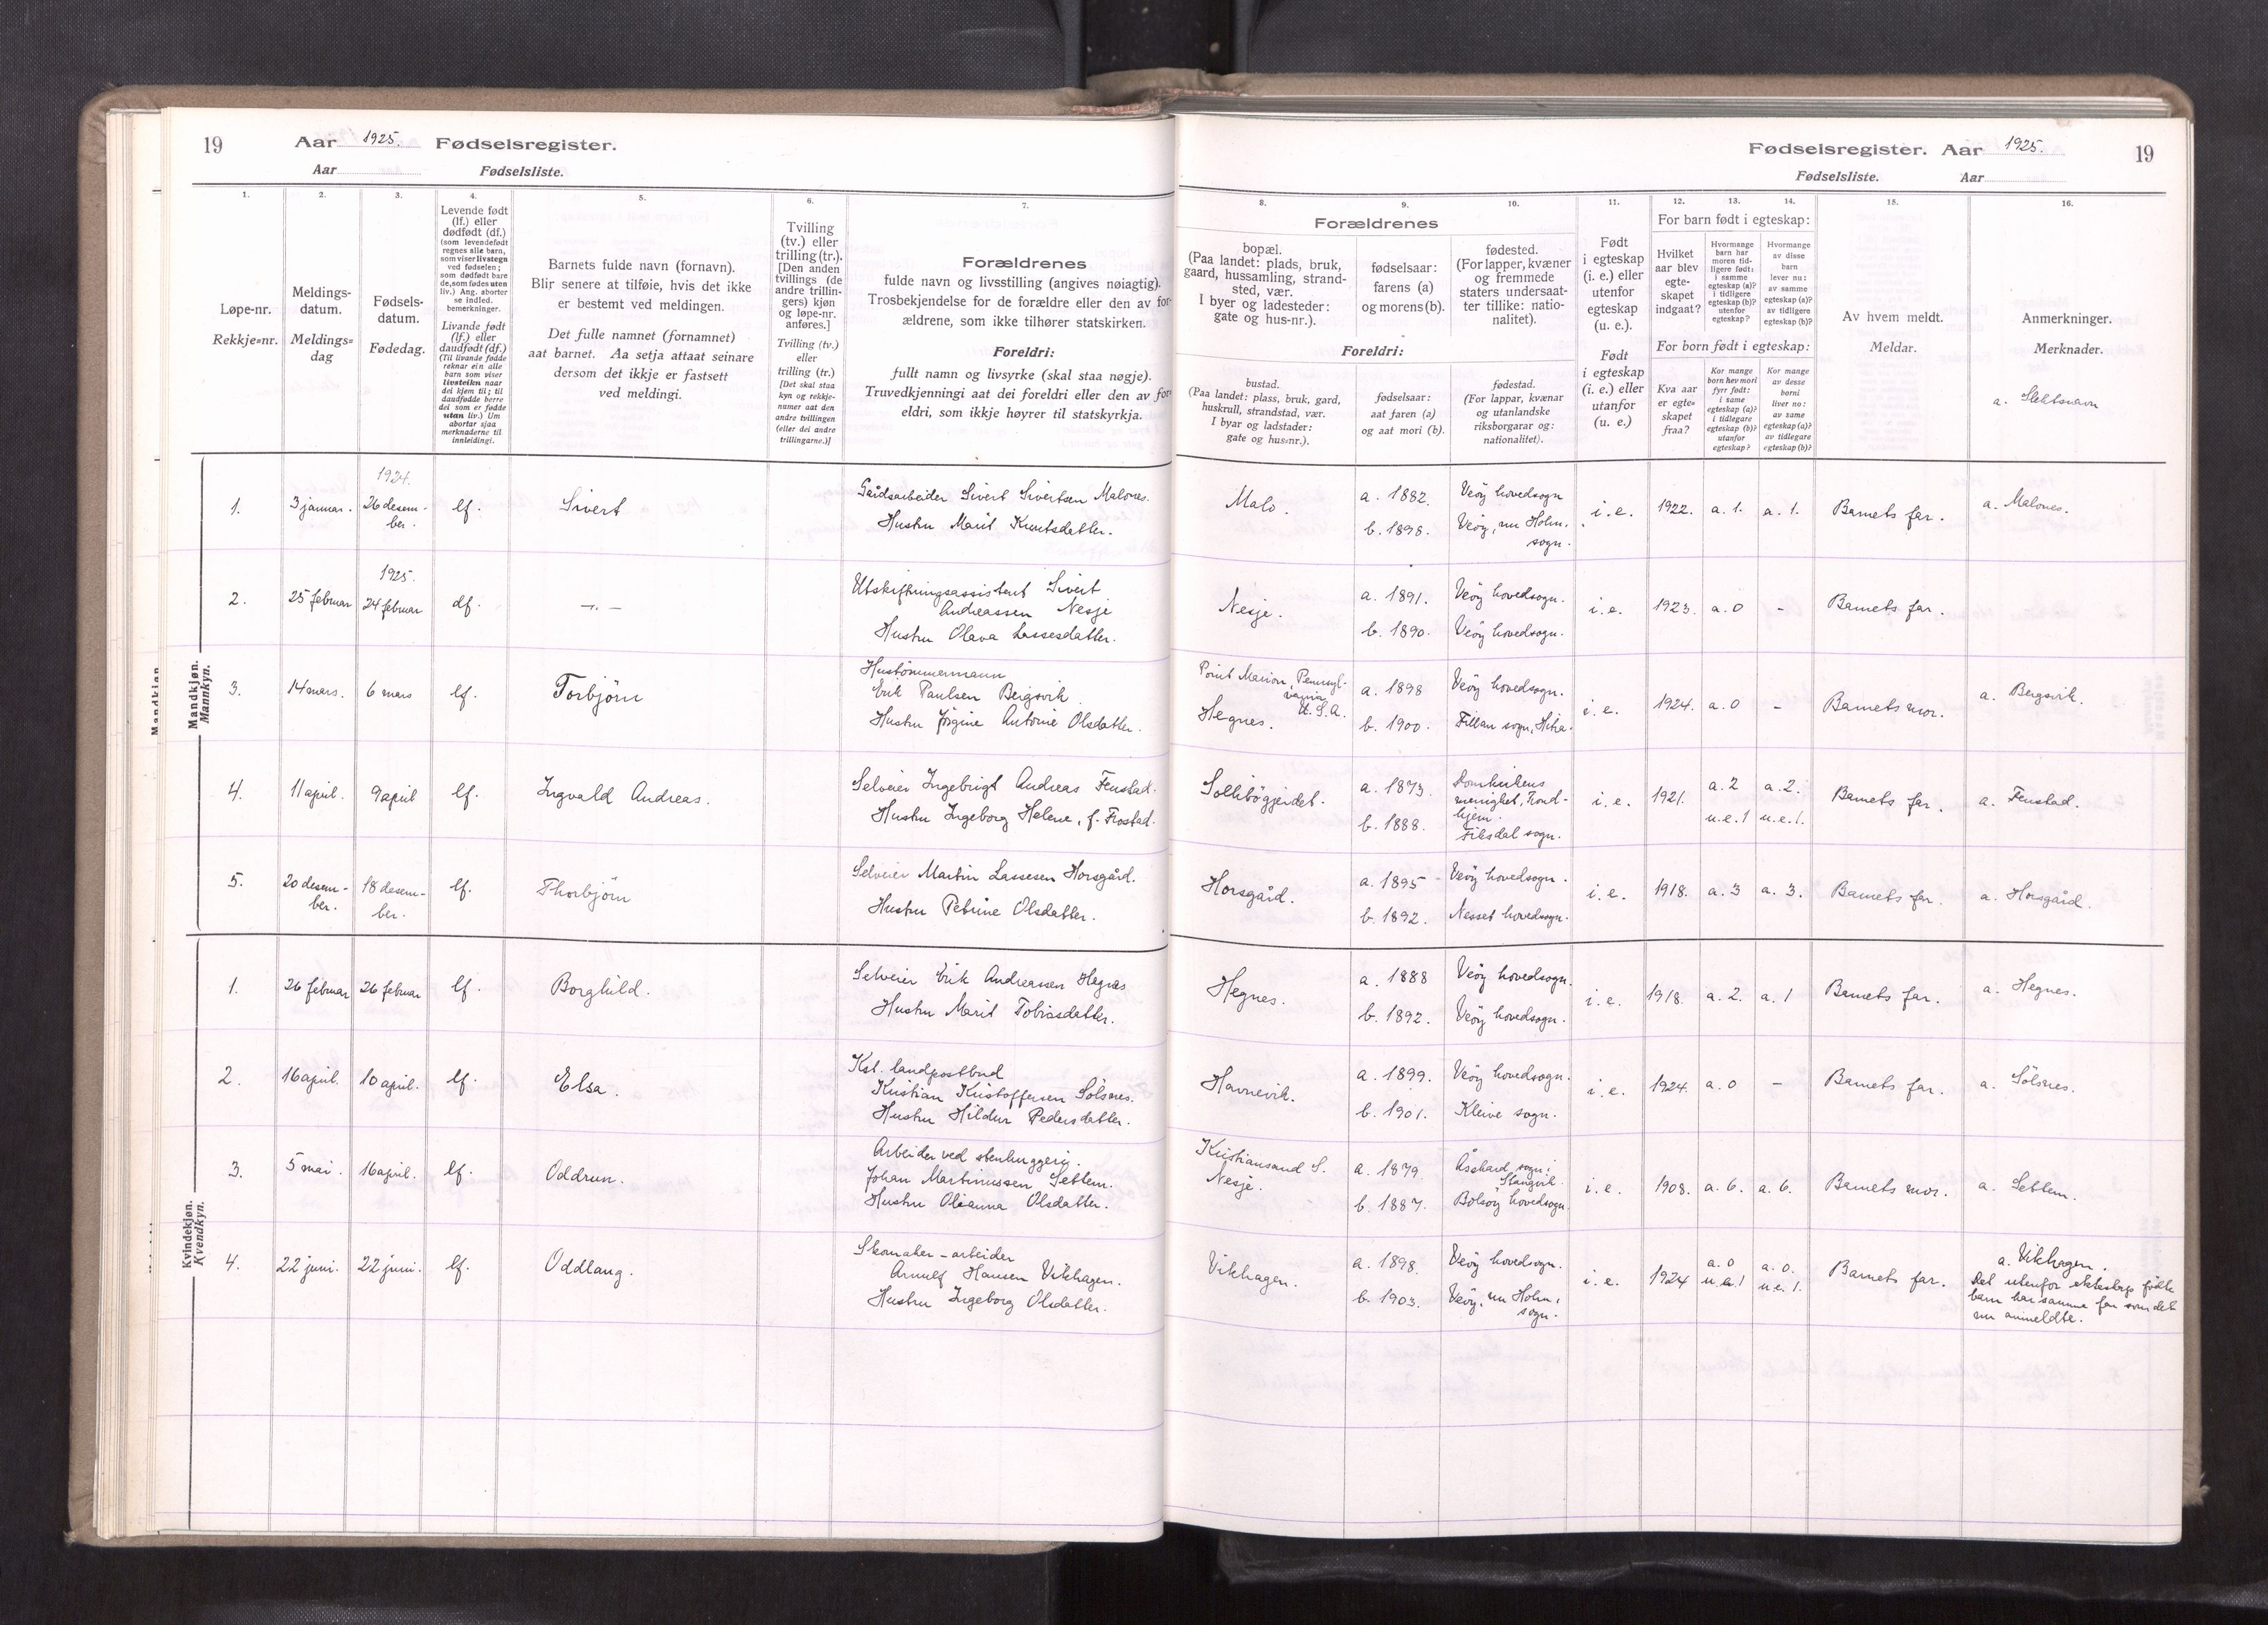 19 Aar 1925. Fødselsregister.
Aar Fødselsliste.
Fødselsregister. Aar 1925. 19
Fødselsliste. Aar
1. 2. 3. 4. 5. 6. 7.
Løpe-nr.
Rekkje=nr.
Meldings-
datum.
Meldings=
dag
Fødsels-
datum.
Fødedag.
Levende født
(lf.) eller
dødfødt (df.)
(som levendefødt
regnes alle barn,
som viser livstegn
ved fødselen;
som dødfødt bare
de, som fødes uten
liv.) Ang. aborter
se indled.
bemerkninger.
Livande født
(lf.) eller
daudfødt (df.)
(Til livande fødde
reknar ein alle
barn som viser
livsteikn naar
dei kjem til; til
daudfødde berre
dei som er fødde
utan liv.) Um
abortar sjaa
merknaderne til
innleidingi.
Barnets fulde navn (fornavn).
Blir senere at tilføie, hvis det ikke
er bestemt ved meldingen.
Det fulle namnet (fornamnet)
aat barnet. Aa setja attaat seinare
dersom det ikkje er fastsett
ved meldingi.
Tvilling
(tv.) eller
trilling (tr.).
[Den anden
tvillings (de
andre trillin-
gers) kjøn
og løpe-nr.
anføres.]
Tvilling (tv.)
eller
trilling (tr.)
[Det skal staa
kyn og rekkje-
numer aat den
andre tvillingen
(eller dei andre
trillingarne.)]
Forældrenes
fulde navn og livsstilling (angives nøiagtig).
Trosbekjendelse for de forældre eller den av for-
ældrene, som ikke tilhører statskirken.
Foreldri:
fullt namn og livsyrke (skal staa nøgje).
Truvedkjenningi aat dei foreldri eller den av for-
eldri, som ikkje høyrer til statskyrkja.
8. 9. 10. 11. 12. 13. 14. 15. 16.
Forældrenes
bopæl.
(Paa landet: plads, bruk,
gaard, hussamling, strand-
sted, vær.
I byer og ladesteder:
gate og hus-nr.).
fødselsaar:
farens (a)
og morens (b).
fødested.
(For lapper, kvæner
og fremmede
staters undersaat-
ter tillike: natio-
nalitet).
Foreldri:
bustad.
(Paa landet: plass, bruk, gard,
huskrull, strandstad, vær.
I byar og ladstader:
gate og hus=nr.).
fødselsaar:
aat faren (a)
og aat mori (b).
fødestad.
(For lappar, kvænar
og utanlandske
riksborgarar og:
nationalitet).
Født
i egteskap
(i. e.) eller
utenfor
egteskap
(u. e.).
Født
i egteskap
(i. e.) eller
utanfor
(u. e.)
For barn født i egteskap:
Hvilket
aar blev
egte-
skapet
indgaat?
Hvormange
barn har
moren tid-
ligere født:
i samme
egteskap (a)?
i tidligere
egteskap (b)?
utenfor
egteskap?
Hvormange
av disse
barn
lever nu:
av samme
egteskap (a)?
av tidligere
egteskap (b)?
For born født i egteskap:
Kva aar
er egte=
skapet
fraa?
Kor mange
born hev mori
fyrr født:
i same
egteskap (a)?
i tidlegare
egteskap (b)?
utanfor
egteskap?
Kor mange
av desse
borni
liver no:
av same
egteskap (a)?
av tidlegare
egteskap (b)?
Av hvem meldt.
Meldar.
Anmerkninger.
Merknader.
a. Slektsnavn
Mandkjøn.
Mannkyn.
1. 3 januar. 1924. 26 desem-
ber. lf. Sivert
Gårdsarbeider Sivert Sivertsen Malones.
Hustru Marit Knutsdatter.
Malo. a. 1882. Veöy hovedsogn
b. 1898. Veöy, nu Holm.
sogn. i. e. 1922. a. 1. a. 1. Barnets far. a. Malones.
2. 25 februar 1925. 24 februar df. —.—
Utskiftningsassistent Sivert
Andreassen Nesje
Hustru Olava Lassesdatter.
Nesje. a. 1891. Veöy hovedsogn.
b. 1890. Veöy hovedsogn. i. e. 1923. a. 0 - Barnets far.
3. 14 mars. 6 mars lf. Torbjörn
Hustömmermann
Erik Paulsen Bergsvik
Hustru Jörgine Antonie Olsdatter.
Point Marion, Pennsyl-
vania
U. S. A.
Hegnes. a. 1898 Veöy hovedsogn.
b. 1900. Fillan sogn, Hitra. i. e. 1924. a. 0 - Barnets mor. a. Bergsvik.
4. 11 april. 9 april lf. Ingvald Andreas.
Selveier Ingebrigt Andreas Fenstad.
Hustru Ingeborg Helene, f. Frostad.
Sollibögjerdet. a. 1873. Domkirkens
menighet, Trond-
hjem.
b. 1888. Eiksdal sogn. i. e. 1921. a. 2 a. 2.
u. e. 1 u. e. 1. Barnets far. a. Fenstad.
5. 20 desem-
ber. 18 desem-
ber. lf. Thorbjörn
Selveier Martin Lassesen Horsgård.
Hustru Petrine Olsdatter.
Horsgård. a. 1895 Veöy hovedsogn.
b. 1892. Nesset hovedsogn. i. e. 1918. a. 3 a. 3. Barnets far. a. Horsgård.
Kvindekjøn.
Kvendkyn.
1. 26 februar 26 februar lf. Borghild.
Selveier Erik Andreassen Hegnes
Hustru Marit Tobiasdatter.
Hegnes. a. 1888 Veöy hovedsogn.
b. 1892. Veöy hovedsogn. i. e. 1918. a. 2. a. 1 Barnets far. a. Hegnes.
2. 16 april. 10 april. lf. Elsa.
Kst. landpostbud
Kristian Kristoffersen Sölsnes.
Hustru Hildur Pedersdatter.
Havnevik. a. 1899. Veöy hovedsogn.
b. 1901. Kleive sogn. i. e. 1924. a. 0 - Barnets far. a. Sölsnes.
3. 5 mai. 16 april. lf. Oddrun.
Arbeider ved stenhuggeri.
Johan Martinussen Settem.
Hustru Olianna Olsdatter.
Kristiansand S.
Nesje. a. 1879 Åsskard sogn i
Stangvik.
b. 1887. Bolsöy hovedsogn. i. e. 1908. a. 6. a. 6. Barnets mor. a. Settem.
4. 22 juni. 22 juni. lf. Oddlaug.
Skomaker-arbeider
Arnulf Hansen Vikhagen.
Hustru Ingeborg Olsdatter.
Vikhagen. a. 1898. Veöy hovedsogn.
b. 1903. Veöy, nu Holm,
sogn. i. e. 1924 a. 0 a. 0.
u. e. 1 u. e. 1. Barnets far. a. Vikhagen.
Det utenfor ekteskap födte
barn har samme far som det
nu anmeldte.